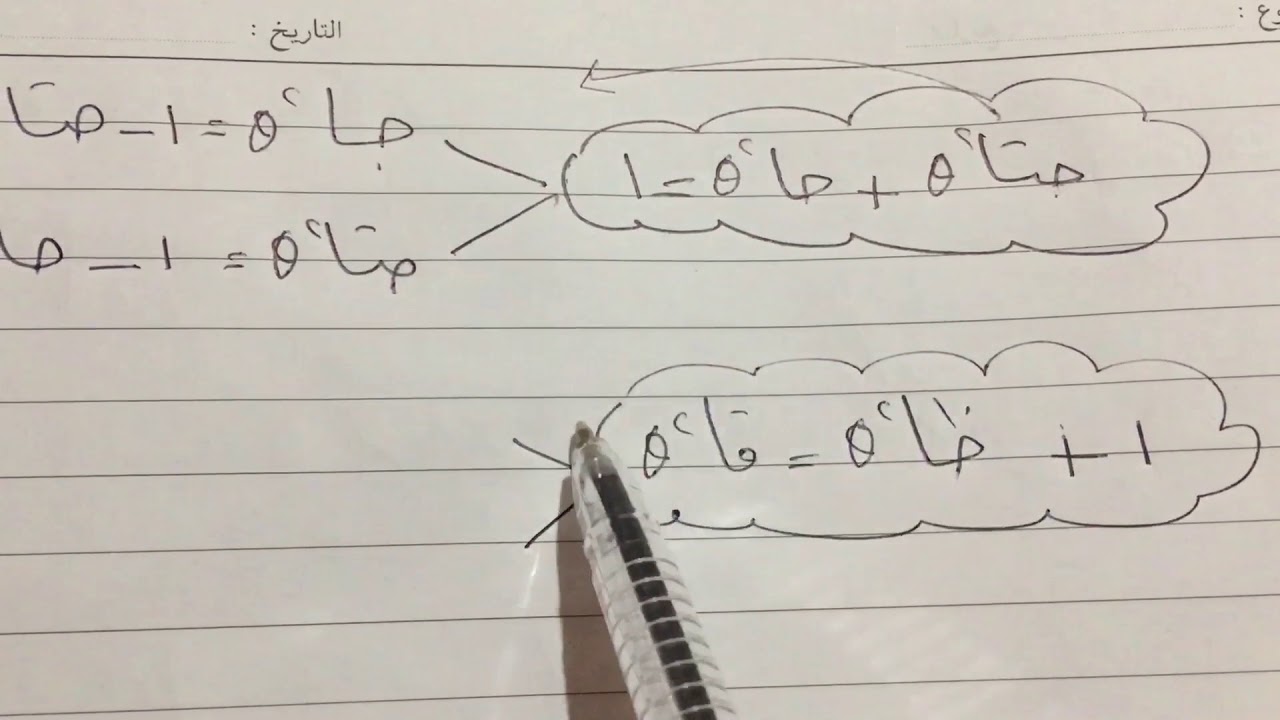 التاريخ :
جتا²θ + جا²θ = ١
جا²θ = ١ − جتا
جتا²θ = ١ − جا
١ + ظا²θ = قا²θ